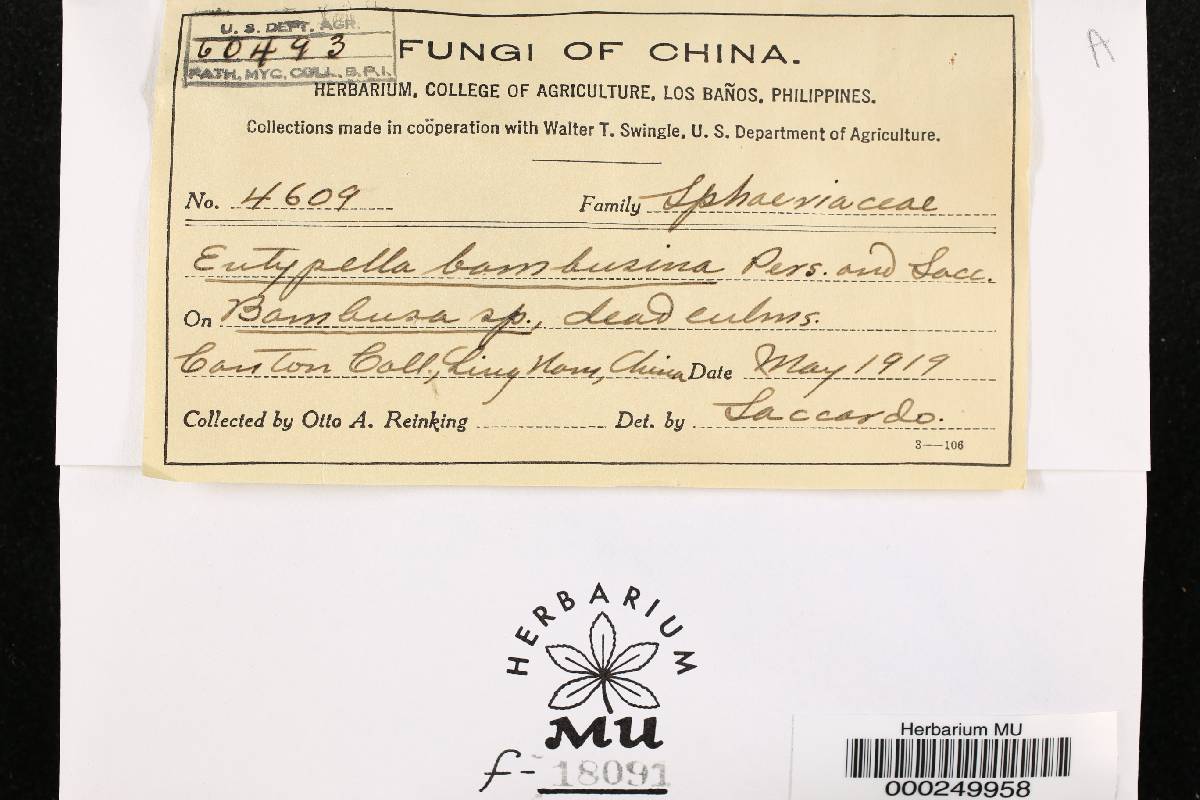 U. S. DEPT. AGR.
60493
PATH. MYC. COLL. B. P. I.
A
FUNGI OF CHINA.
HERBARIUM, COLLEGE OF AGRICULTURE, LOS BAÑOS, PHILIPPINES.
Collections made in coöperation with Walter T. Swingle, U. S. Department of Agriculture.
No. 4609 Family Sphaeriaceae
Eutypella bambusina Pers. and Sacc.
On Bambusa sp., dead culms.
Canton Coll., Ling Nam, China Date May 1919
Collected by Otto A. Reinking Det. by Saccardo.
3—106
HERBARIUM
MU
f- 18091
Herbarium MU
000249958